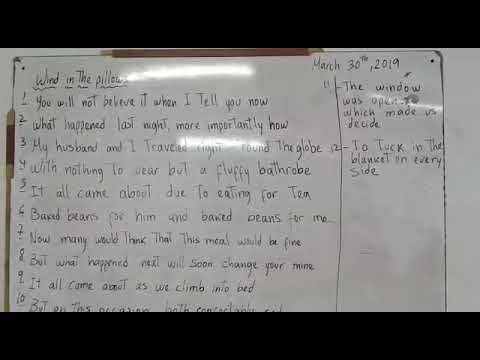 March 30th, 2019
Wind in the pillows
1 You will not believe it when I Tell you now
2 what happened last night, more importantly how
3 My husband and I Traveled right round The globe
4 With nothing to wear but a fluffy bathrobe
5 It all came about due to eating for Tea
6 Baked beans for him and baked beans for me
7 Now many would Think That This meal would be fine
8 But what happened next will soon change your mine
9 It all came about as we climb into bed
10 But on this occasion both
11 - The window
was open
which made us
decide
12 - To Tuck in the
blanket on every
side